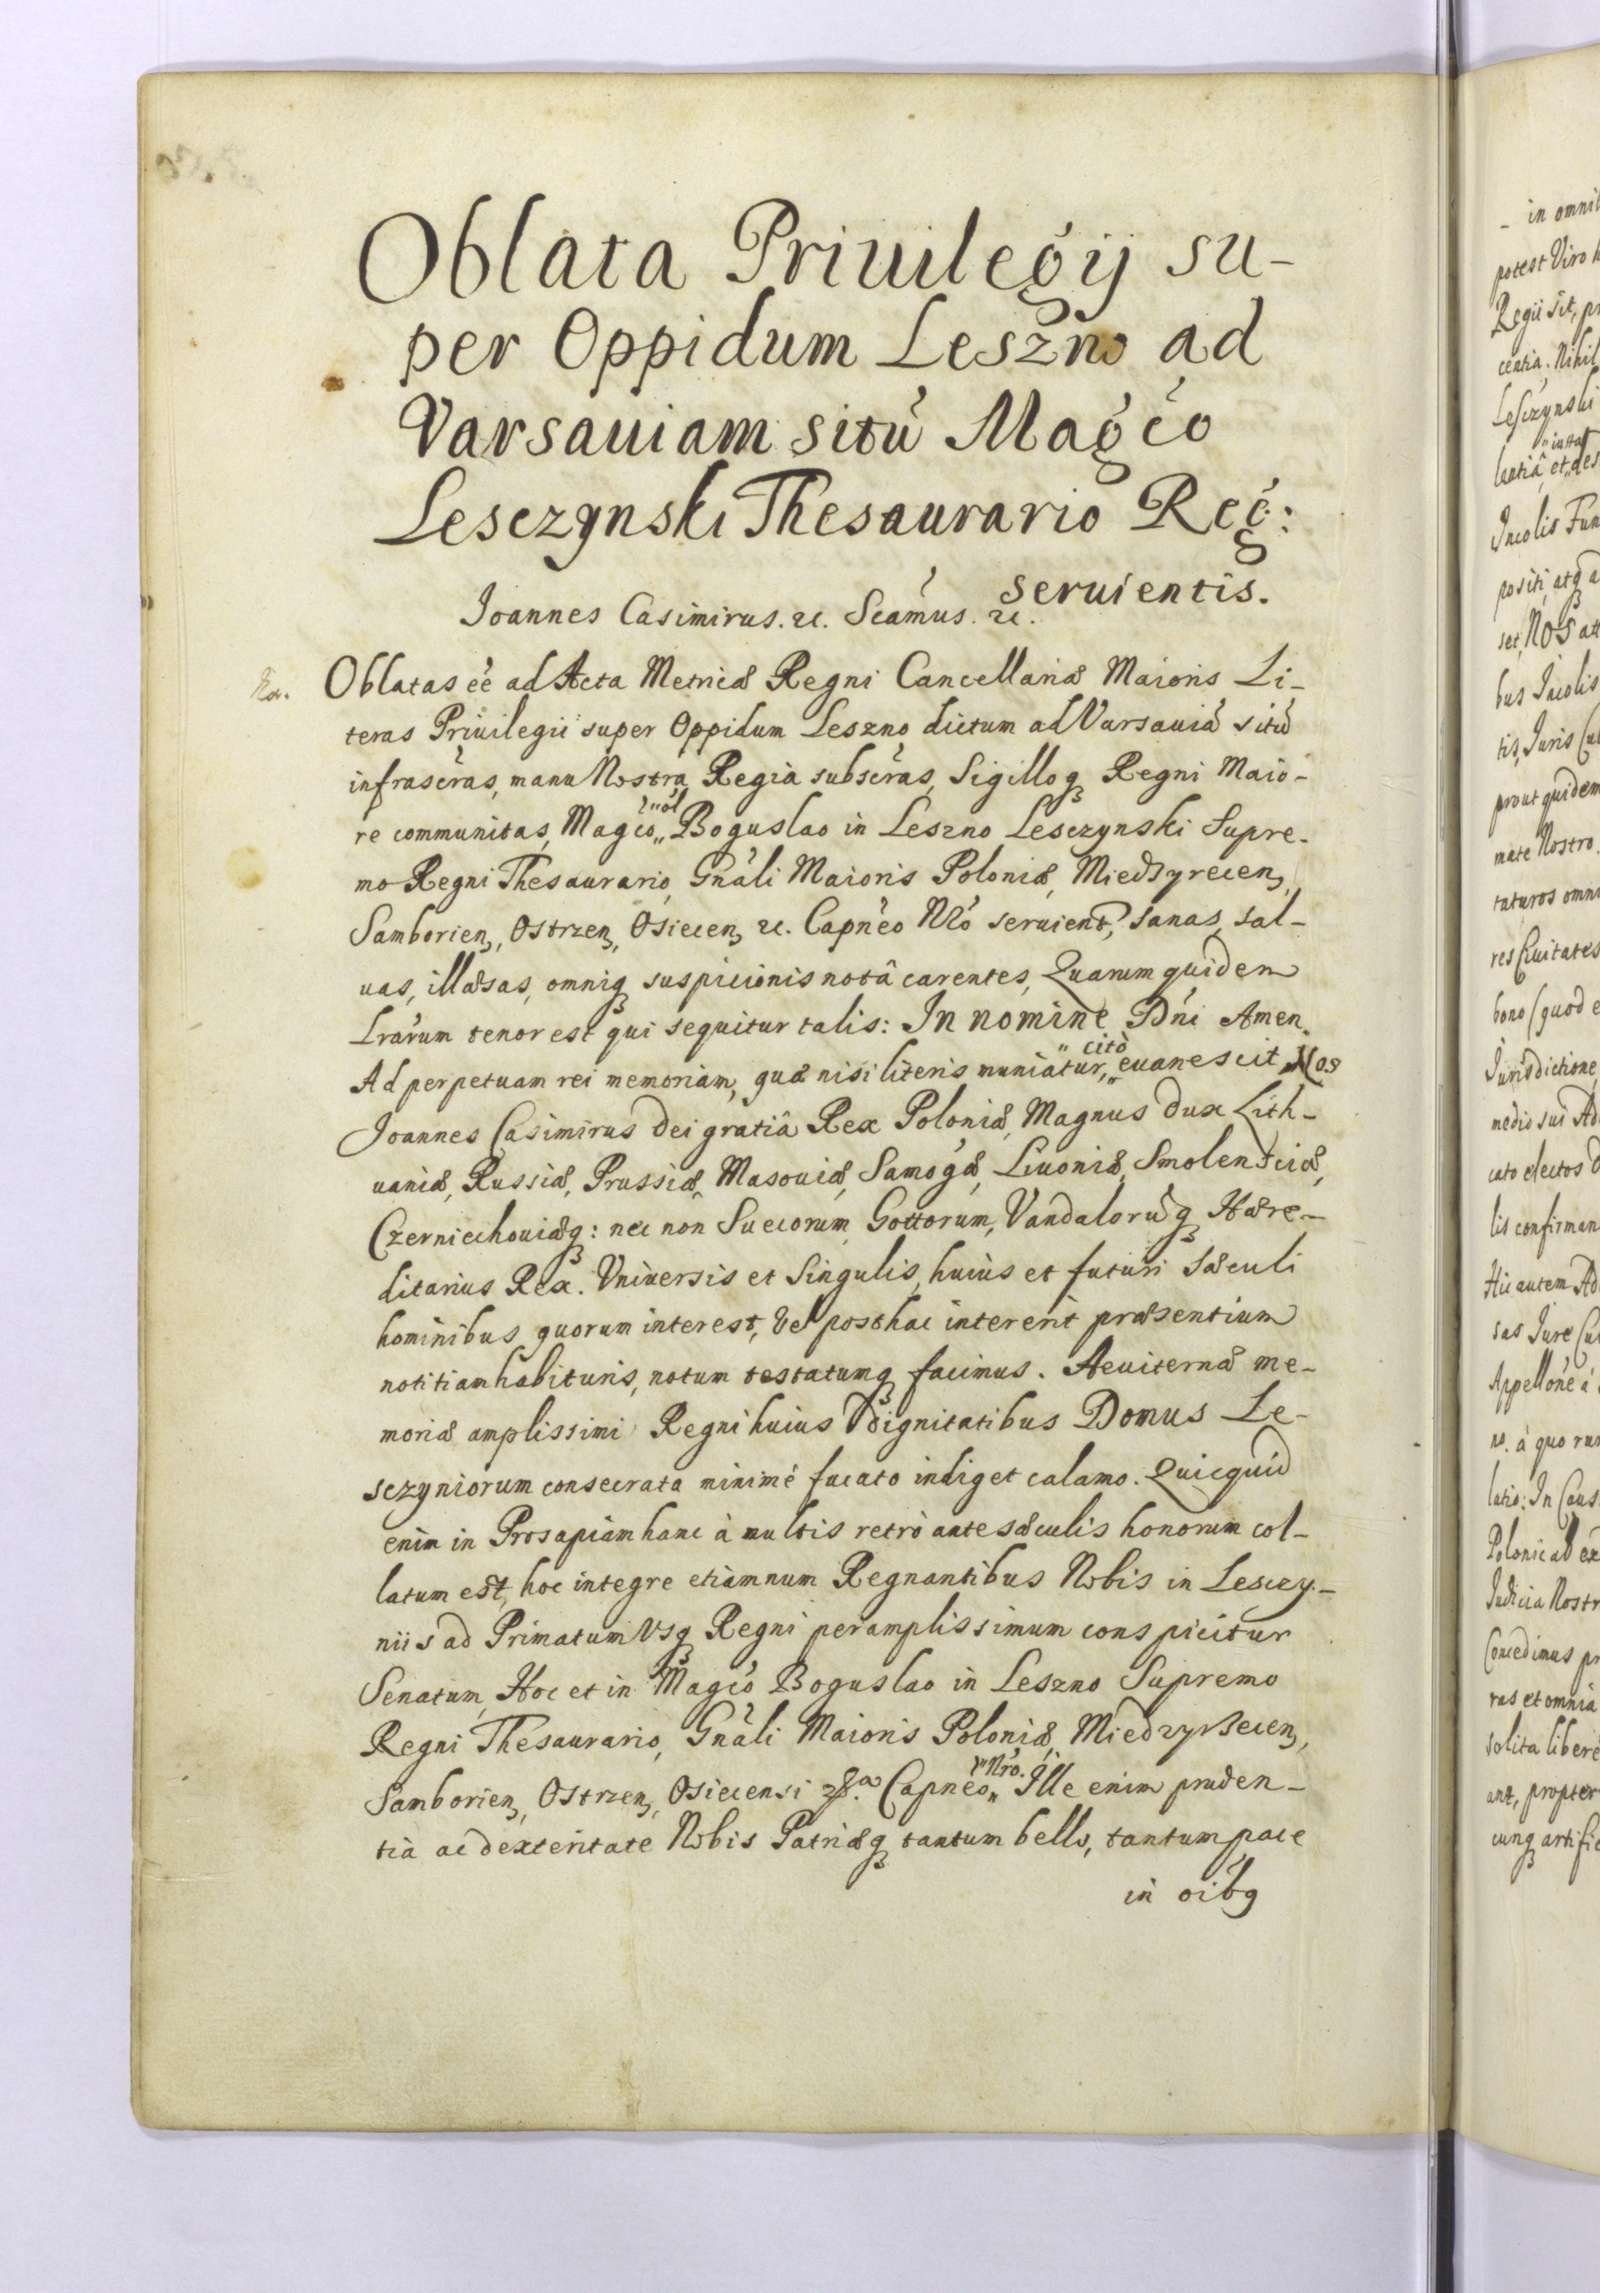 Oblata Priuilegij su-
per Oppidum Leszno ad
Varsauiam situ̓ Mag̓co
Lesczynski Thesaurario Reg̓:
seruientis.
Joannes Casimirus. &c. Sca̓mus. &c.
Oblatas ee̓ ad Acta Metricæ Regni Cancellariæ Maioris Li-
teras Priuilegii super Oppidum Leszno dictum ad Varsauia̓ situ̓
infrascr̓as, manu Nostra Regia subscr̓as, Sigilloq Regni Maio-
re communitas, Mag̓co Boguslao in Leszno Lesczynski Supre-
mo Regni Thesaurario, Gn̓ali Maioris Poloniæ, Miedzyrecen,
Samborien, Ostrzen, Osiecen, &c. Capn̓eo Nr̓o seruient, sanas, sal-
uas, illæsas, omniq suspicionis notâ carentes, Quarum quidem
Lr̓arum tenor est qui sequitur talis: In nomine Dn̓i Amen.
Ad perpetuam rei memoriam, quæ nisi literis muniatur, cito euanescit, Nos
Joannes Casimirus Dei gratiâ Rex Poloniæ, Magnus Dux Lith-
uaniæ, Russiæ, Prussiæ, Masouiæ, Samog̓æ, Liuoniæ, Smolensciæ,
Czerniechouiæq: nec non Suecorum, Gottorum, Vandaloru̓q Hære-
ditarius Rex. Vniuersis et Singulis, huius et futuri Sæculi
hominibus quorum interest, vel posthac intererit præsentium
notitiam habituris, notum testatumq facimus. Aeuiternæ me-
moriæ amplissimi Regni huius Dignitatibus Domus Le-
sczyniorum consecrata minimè fucato indiget calamo. Quicquid
enim in Prosapiam hanc à multis retrò ante sæculis honorum col-
latum est, hoc integre etiamnum Regnantibus Nobis in Lesczy-
niis ad Primatum Vsq Regni peramplissimum conspicitur
Senatum, Hoc et in Mag̓co Boguslao in Leszno Supremo
Regni Thesaurario, Gn̓ali Maioris Poloniæ, Miedzyrzecen,
Samborien, Ostrzen, Osiecensi &c. Capn̓eo Nr̓o. Ille enim pruden-
tia ac dexteritate Nobis Patriæq tantum bello, tantum pace
in oib̓q
- in omni
potest Viro
Regii sit,
centia. Nihil
Lesczynski
Incolis
positi, atq
set, Nos
bus Incolis
tis, Juris
prout quidem
mate Nostro.
taturos
res Ciuitates
bono (quod
Jurisdictione,
medio sui
cato electos
lis
Hic autem
sas Jure
Appellon̓e à
no. à quo
latio: In
Polonical
Judicia
Concedimus
ras et omnia
solita liberè
ant, propter
cunq